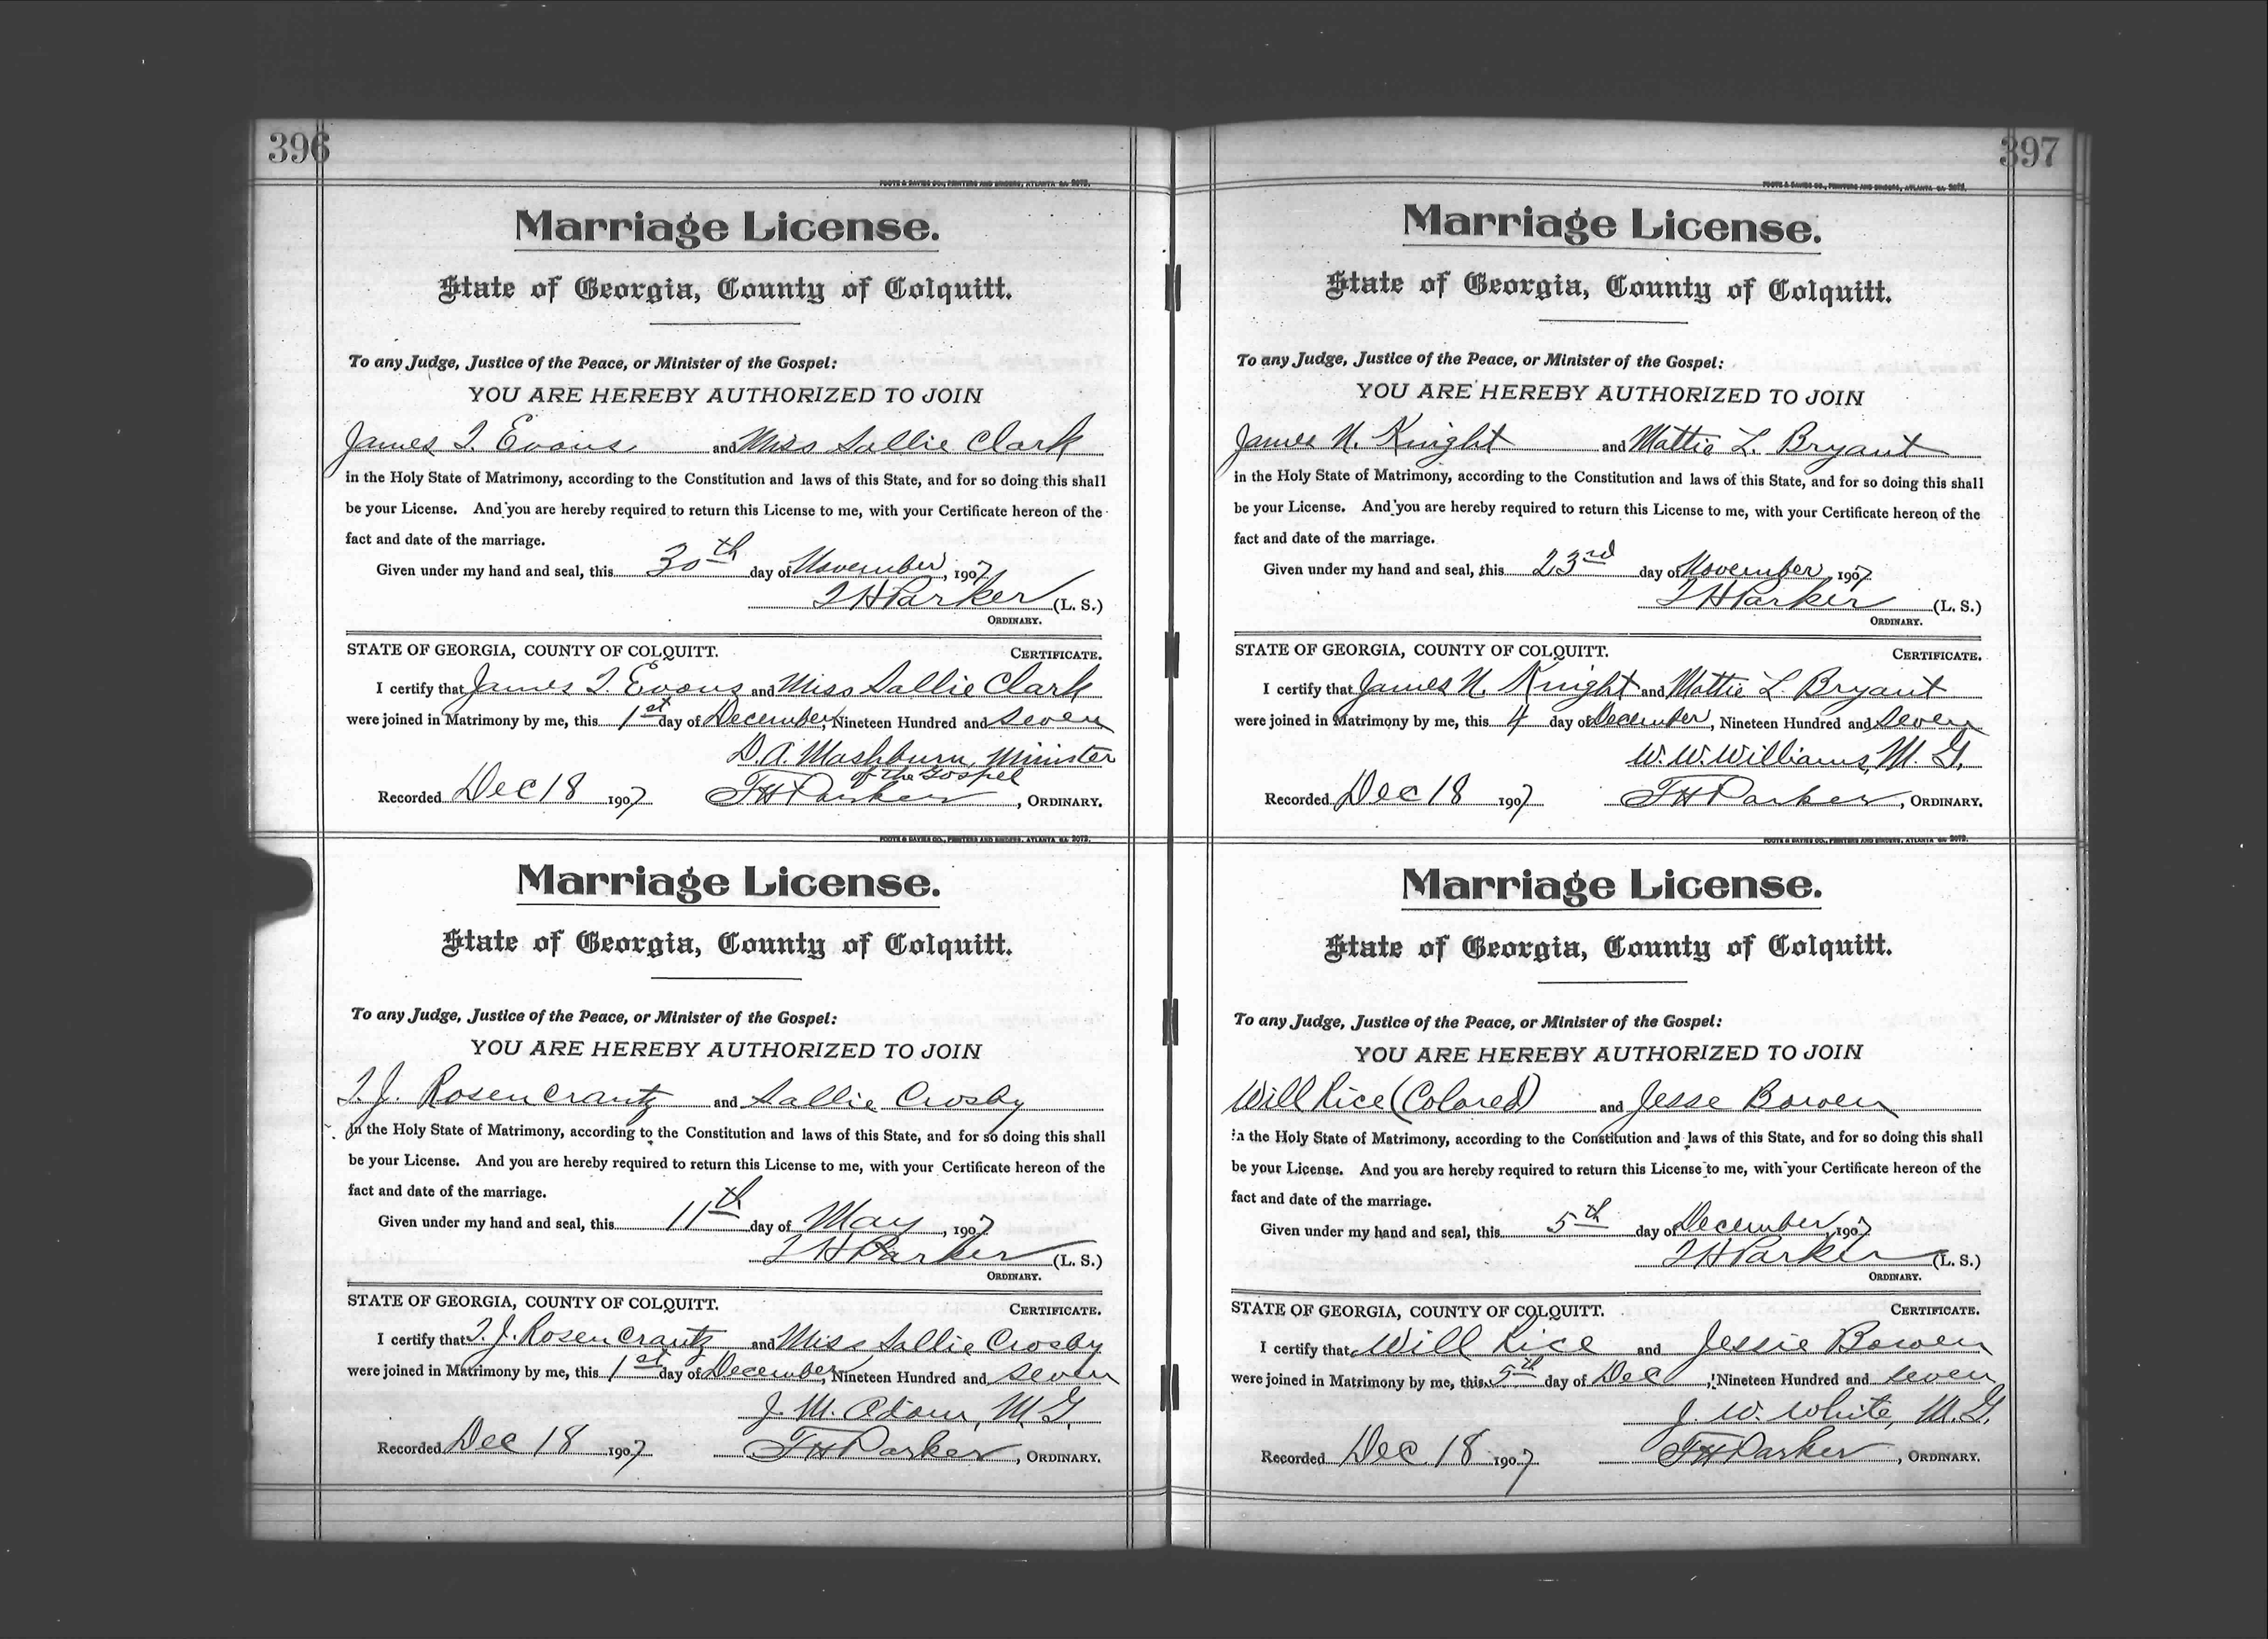 396
FOOTE & DAVIES CO., PRINTERS AND BINDERS, ATLANTA GA 2073.
Marriage License.
State of Georgia, County of Colquitt.
To any Judge, Justice of the Peace, or Minister of the Gospel:
YOU ARE HEREBY AUTHORIZED TO JOIN
James T. Evans and Miss Sallie Clark
in the Holy State of Matrimony, according to the Constitution and laws of this State, and for so doing this shall
be your License. And you are hereby required to return this License to me, with your Certificate hereon of the
fact and date of the marriage.
Given under my hand and seal, this 30th day of November, 1907
T H Parker (L. S.)
ORDINARY.
STATE OF GEORGIA, COUNTY OF COLQUITT. CERTIFICATE.
I certify that James T. Evans and Miss Sallie Clark
were joined in Matrimony by me, this 1st day of December, Nineteen Hundred and seven
D. A. Mashburn, Minister
of the Gospel
Recorded Dec 18 1907 T H Parker, ORDINARY.
FOOTE & DAVIES CO., PRINTERS AND BINDERS, ATLANTA GA 2073.
Marriage License.
State of Georgia, County of Colquitt.
To any Judge, Justice of the Peace, or Minister of the Gospel:
YOU ARE HEREBY AUTHORIZED TO JOIN
T. J. Rosencrantz and Sallie Crosby
in the Holy State of Matrimony, according to the Constitution and laws of this State, and for so doing this shall
be your License. And you are hereby required to return this License to me, with your Certificate hereon of the
fact and date of the marriage.
Given under my hand and seal, this 11th day of May, 1907
T H Parker (L. S.)
ORDINARY.
STATE OF GEORGIA, COUNTY OF COLQUITT. CERTIFICATE.
I certify that T. J. Rosencrantz and Miss Sallie Crosby
were joined in Matrimony by me, this 1st day of December, Nineteen Hundred and seven
J. M. Odom, M. G.
Recorded Dec 18 1907 T H Parker, ORDINARY.
397
FOOTE & DAVIES CO., PRINTERS AND BINDERS, ATLANTA GA 2073.
Marriage License.
State of Georgia, County of Colquitt.
To any Judge, Justice of the Peace, or Minister of the Gospel:
YOU ARE HEREBY AUTHORIZED TO JOIN
James N. Knight and Mattie L. Bryant
in the Holy State of Matrimony, according to the Constitution and laws of this State, and for so doing this shall
be your License. And you are hereby required to return this License to me, with your Certificate hereon of the
fact and date of the marriage.
Given under my hand and seal, this 23rd day of November, 1907
T H Parker (L. S.)
ORDINARY.
STATE OF GEORGIA, COUNTY OF COLQUITT. CERTIFICATE.
I certify that James N. Knight and Mattie L. Bryant
were joined in Matrimony by me, this 4 day of December, Nineteen Hundred and seven
W. W. Williams, M. G.
Recorded Dec 18 1907 T H Parker, ORDINARY.
FOOTE & DAVIES CO., PRINTERS AND BINDERS, ATLANTA GA 2073.
Marriage License.
State of Georgia, County of Colquitt.
To any Judge, Justice of the Peace, or Minister of the Gospel:
YOU ARE HEREBY AUTHORIZED TO JOIN
Will Rice (Colored) and Jesse Bowen
in the Holy State of Matrimony, according to the Constitution and laws of this State, and for so doing this shall
be your License. And you are hereby required to return this License to me, with your Certificate hereon of the
fact and date of the marriage.
Given under my hand and seal, this 5th day of December, 1907
T H Parker (L. S.)
ORDINARY.
STATE OF GEORGIA, COUNTY OF COLQUITT. CERTIFICATE.
I certify that Will Rice and Jessie Bowen
were joined in Matrimony by me, this 5th day of Dec, Nineteen Hundred and seven
J. W. White, M. G.
Recorded Dec. 18 1907 T H Parker, ORDINARY.